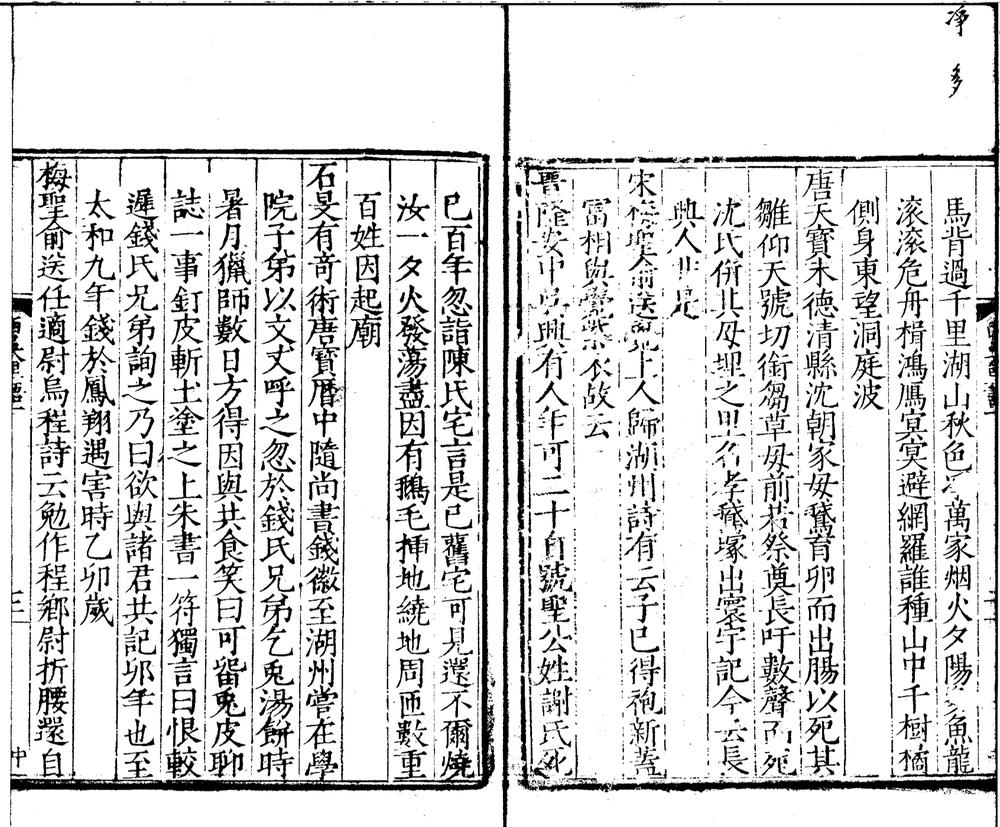 净多
馬背過千里湖山秋色萬家烟火夕陽魚龍
滚滚危舟楫鴻鴈冥冥避網羅誰種山中千樹橘
側身東望洞庭波
唐天寶末德清縣沈朝家母鵞育卵而出腸以死其
雛仰天號切銜芻草母前若祭奠長吁數聲而死
沈氏併其母埋之里名孝鵞塚出寰宇記今云長
興人非是
宋梅聖俞送上人歸湖州詩有云子已得袍新蓋
富相與衣故云
晋隆安中吳興有人年可二十自號聖公姓謝氏死
已百年忽詣陳氏宅言是已舊宅可見還不爾燒
汝一夕火發蕩盡因有鵝毛揷地繞地周匝數重
百姓因起廟
石旻有奇術唐寶曆中隨尚書錢徽至湖州嘗在學
院子弟以文丈呼之忽於錢氏兄弟乞兎湯餅時
暑月獵師數日方得因與共食笑曰可留兎皮聊
誌一事釘皮斬土塗之上朱書一符獨言曰恨較
遲錢氏兄弟詢之乃曰欲與諸君共記卯年也至
太和九年錢於鳳翔遇害時乙卯歲
梅聖俞送任適尉烏程詩云勉作程鄉尉折腰還自